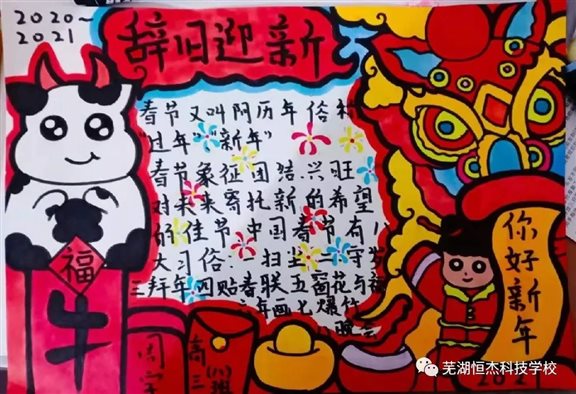 2020~
2021
辞旧迎新
春节又叫阴历年俗称
"过年""新年"
春节象征团结.兴旺
对未来寄托新的希望
的佳节中国春节有八
大习俗:一扫尘二守岁
三拜年四贴春联五窗花与
年画七爆竹
晚会
福
牛
高三
你好新年
2021
芜湖恒杰科技学校